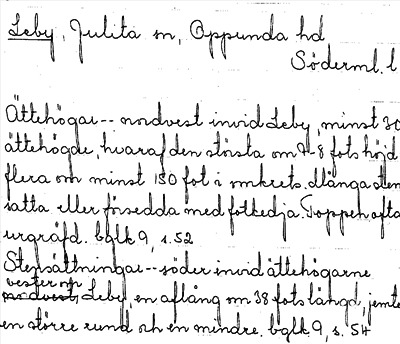 Leby, Julita sn, Oppunda hd
Söderml. l
Ättehögar -- nordvest invid Leby, minst 30
ättehögar, hvaraf den största om 7-8 fots höjd
flera om minst 150 fot i omkrets. Många sten
satta eller försedda med fotkedja. Toppen ofta
urgräfd. bglk 9, s. 52
Stensättningar -- söder invid ättehögarne
vester om
nordvest, Leby, en aflång om 38 fots längd, jemte
en större rund och en mindre. bglk. 9, s. 54